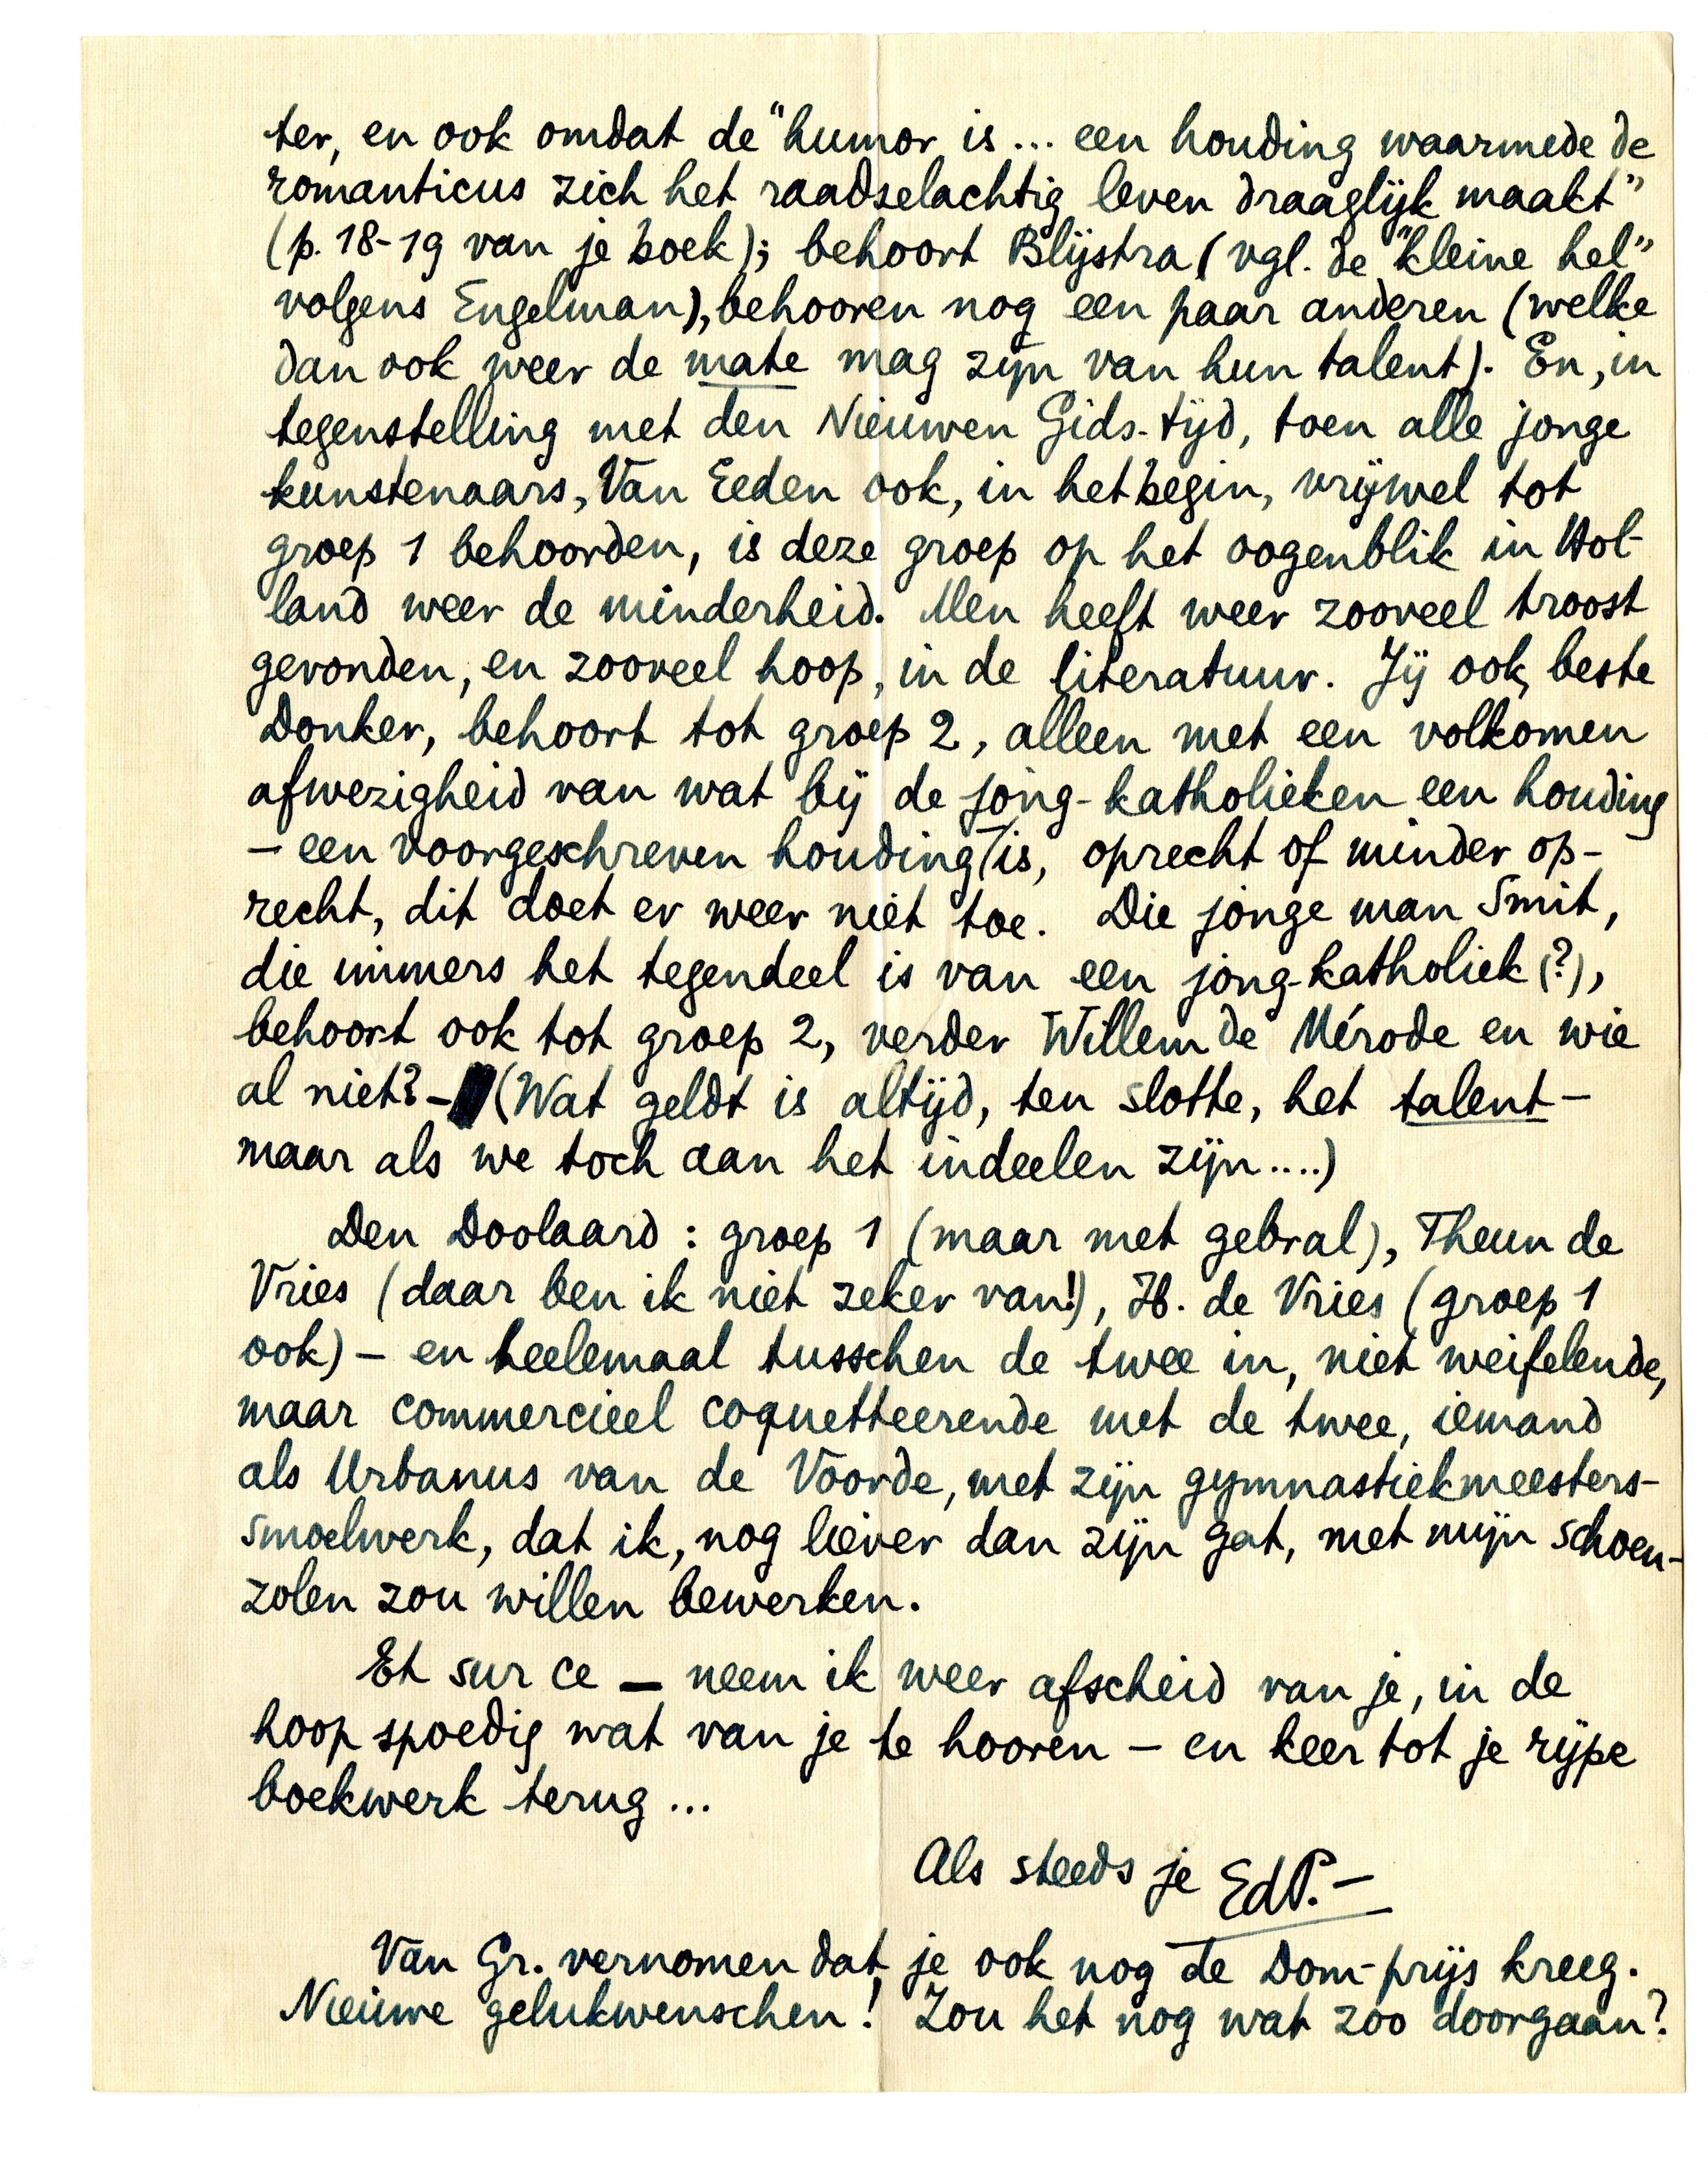 ter, en ook omdat de "humor is... een houding waarmede de
romanticus zich het raadselachtig leven draaglijk maakt"
(p. 18-19 van je boek); behoort Blijstra (vgl. de "kleine hel"
volgens Engelman), behooren nog een paar anderen (welke
dan ook weer de mate mag zijn van hun talent). En, in
tegenstelling met den Nieuwen Gids-tijd, toen alle jonge
kunstenaars, Van Eeden ook, in het begin, vrijwel tot
groep 1 behoorden, is deze groep op het oogenblik in Hol-
land weer de minderheid. Men heeft weer zooveel troost
gevonden, en zooveel hoop, in de literatuur. Jij ook, beste
Donker, behoort tot groep 2, alleen met een volkomen
afwezigheid van wat bij de jong-katholieken een houding
- een voorgeschreven houding! is, oprecht of minder op-
recht, dit doet er weer niet toe. Die jonge man Smit,
die immers het tegendeel is van een jong-katholiek (?),
behoort ook tot groep 2, verder Willem de Mérode en wie
al niet? - (Wat geldt is altijd, ten slotte, het talent -
maar als we toch aan het indeelen zijn....)
Den Doolaard : groep 1 (maar met gebral), Theun de
Vries (daar ben ik niet zeker van!), H. de Vries (groep 1
ook) - en heelemaal tusschen de twee in, niet weifelende,
maar commercieel coquetteerende met de twee, iemand
als Urbanus van de Voorde, met zijn gymnastiekmeesters-
smoelwerk, dat ik, nog liever dan zijn gat, met mijn schoen-
zolen zou willen bewerken.
Et sur ce - neem ik weer afscheid van je, in de
hoop spoedig wat van je te hooren - en keer tot je rijpe
boekwerk terug ...
Als steeds je EdP. -
Van Gr. vernomen dat je ook nog de Dom-prijs kreeg.
Nieuwe gelukwenschen! Zou het nog wat zoo doorgaan?